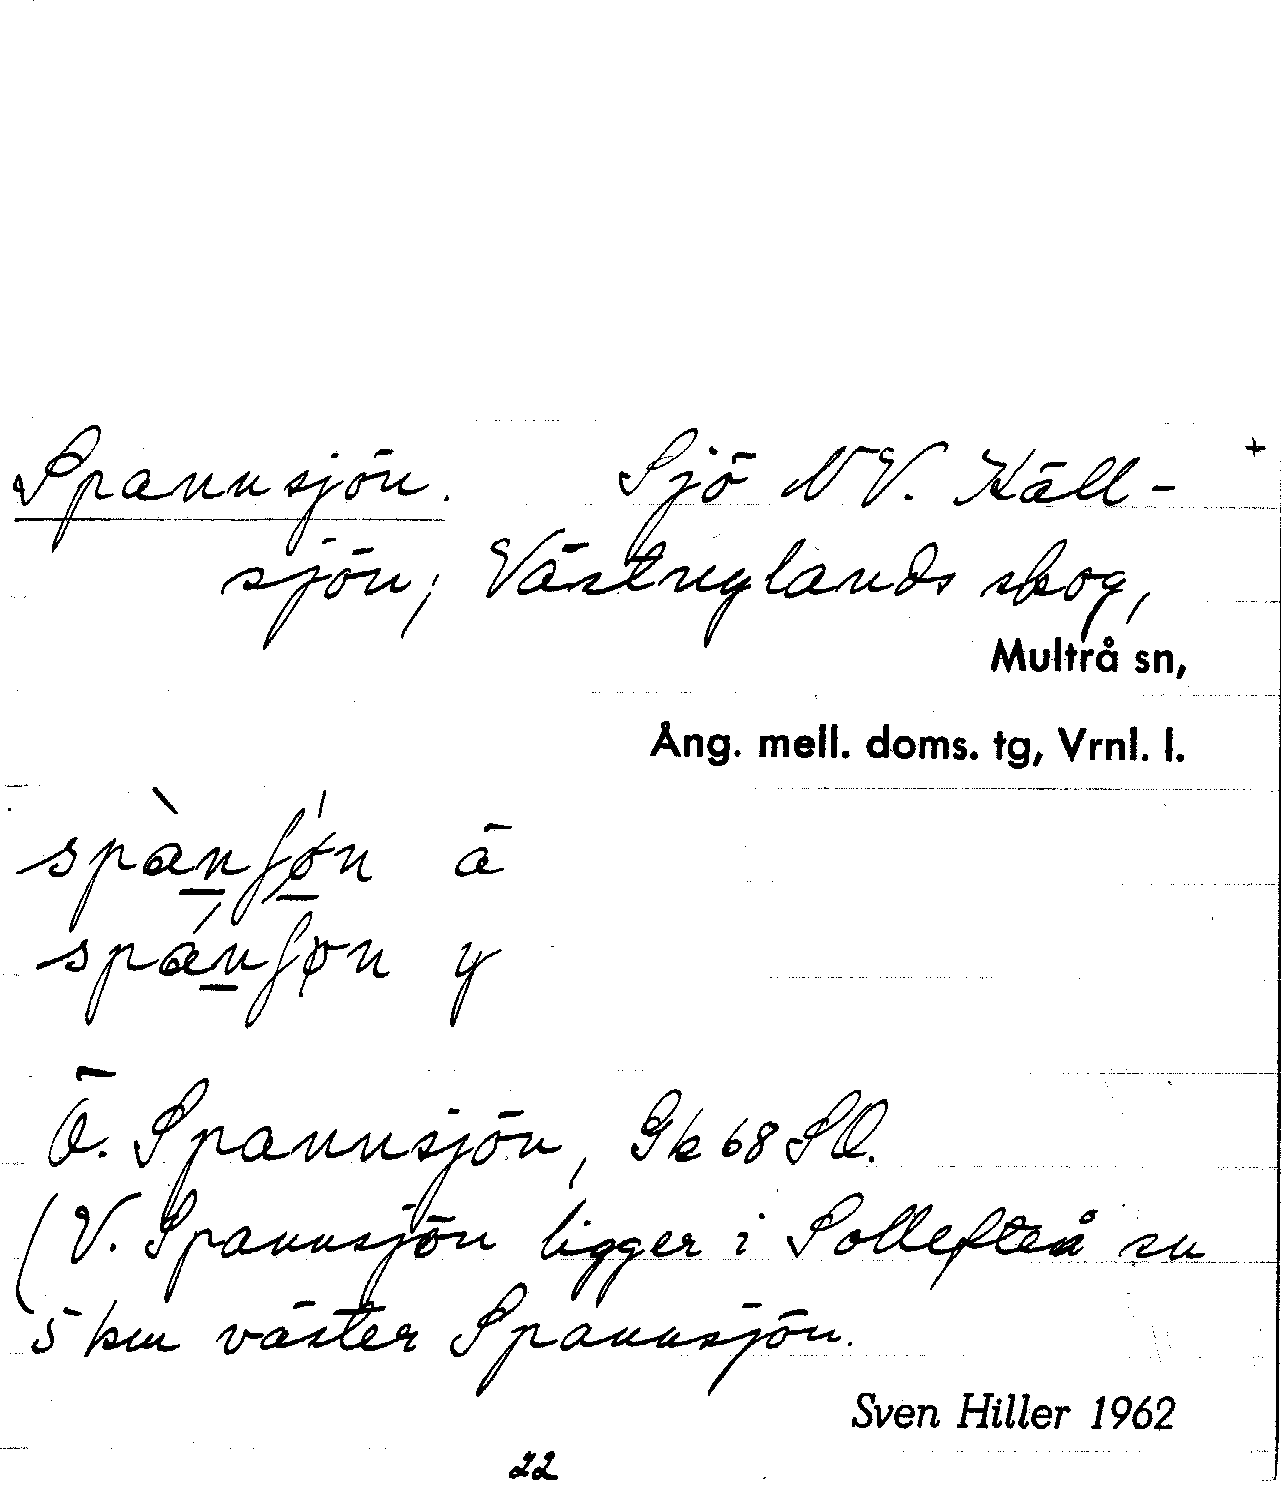 Spannsjön. Sjö NV. Käll- +
sjön; Västnylands skog,
Multrå sn,
Ång. mell. doms. tg, Vrnl. l.
spànʃø̀n ä
spánʃøn y
Ö. Spannsjön, Gk 68 SO.
(V. Spannsjön ligger i Sollefteå sn
5 km väster Spannsjön.
Sven Hiller 1962
22